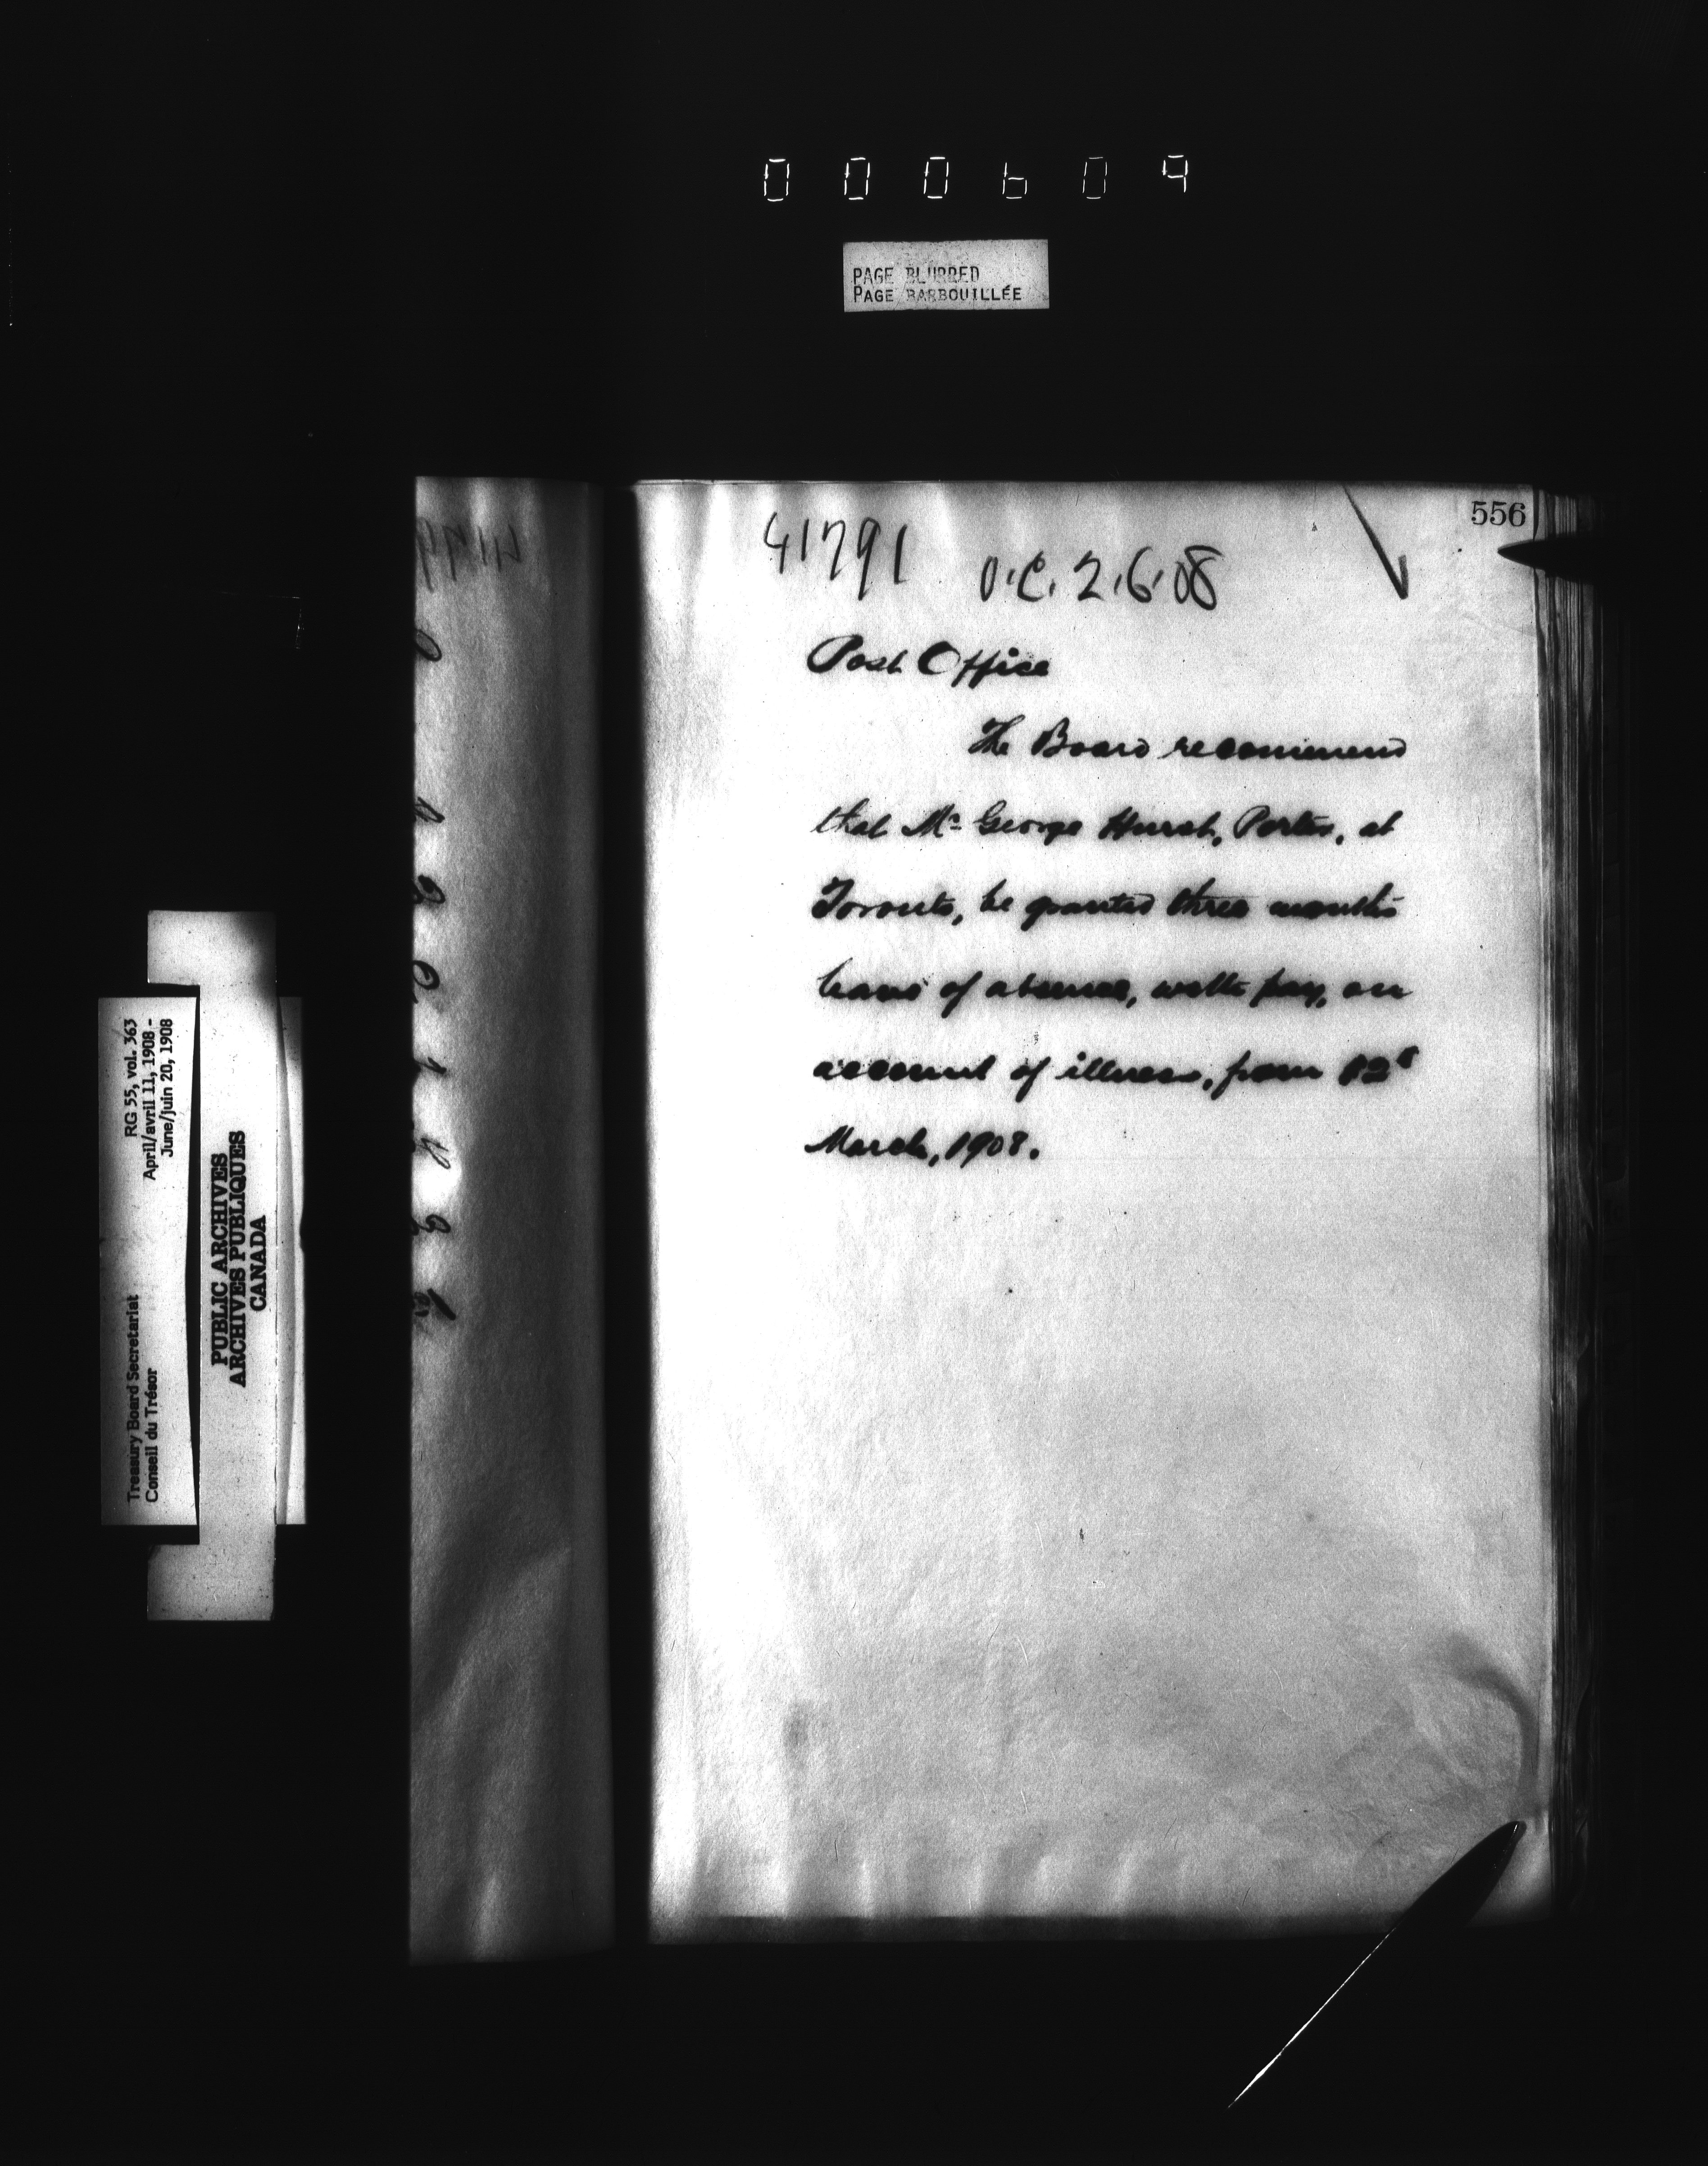 000609
PAGE BLURRED
PAGE BARBOUILLÉE
556
41791 O.C. 2.6.08
Post Office
The Board recommend
that Mr. George Hurst, Porter, at
Toronto, be granted three months
leave of absence, with pay, on
account of illness, from 12th
March, 1908.
RG 55, vol. 363
April/avril 11, 1908 -
June/juin 20, 1908
Treasury Board Secretariat
Conseil du Trésor
PUBLIC ARCHIVES
ARCHIVES PUBLIQUES
CANADA